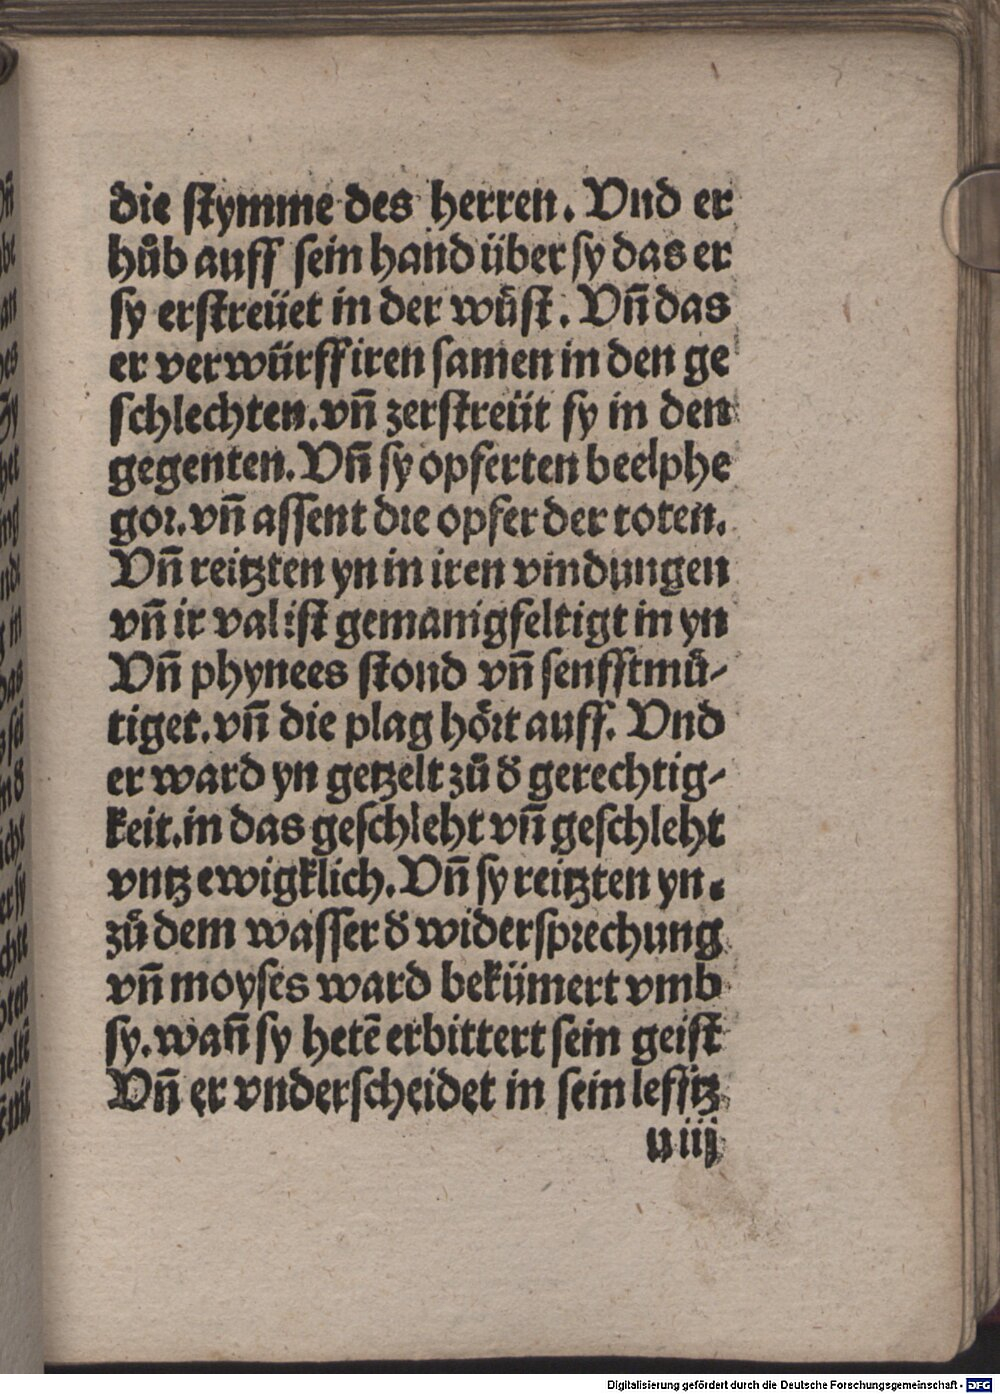 die stymme des herren. Vnd er
hůb auff sein hand über sy das er
sy erstreüet in der wůst. Vn̄ das
er verwürff iren samen in den ge
schlechten. vn̄ zerstreüt sy in den
gegenten. Vn̄ sy opferten beelphe
gor. vn̄ assent die opfer der toten.
Vn̄ reitzten yn in iren vindungen
vn̄ ir val ist gemanigfeltigt in yn
Vn̄ phynees stond vn̄ senfftmů-
tiget. vn̄ die plag hört auff. Vnd
er ward yn getzelt zů d̕ gerechtig-
keit. in das geschleht vn̄ geschleht
vntz ewigklich. Vn̄ sy reitzten yn.
zů dem wasser d̕ widersprechung
vn̄ moyses ward bekümert vmb
sy. wan̄ sy hetē erbittert sein geist
Vn̄ er vnderscheidet in sein lefftz
u iij
Digitalisierung gefördert durch die Deutsche Forschungsgemeinschaft - DFG